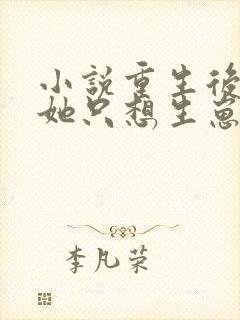 小說重生後
她只想生崽
李凡荣